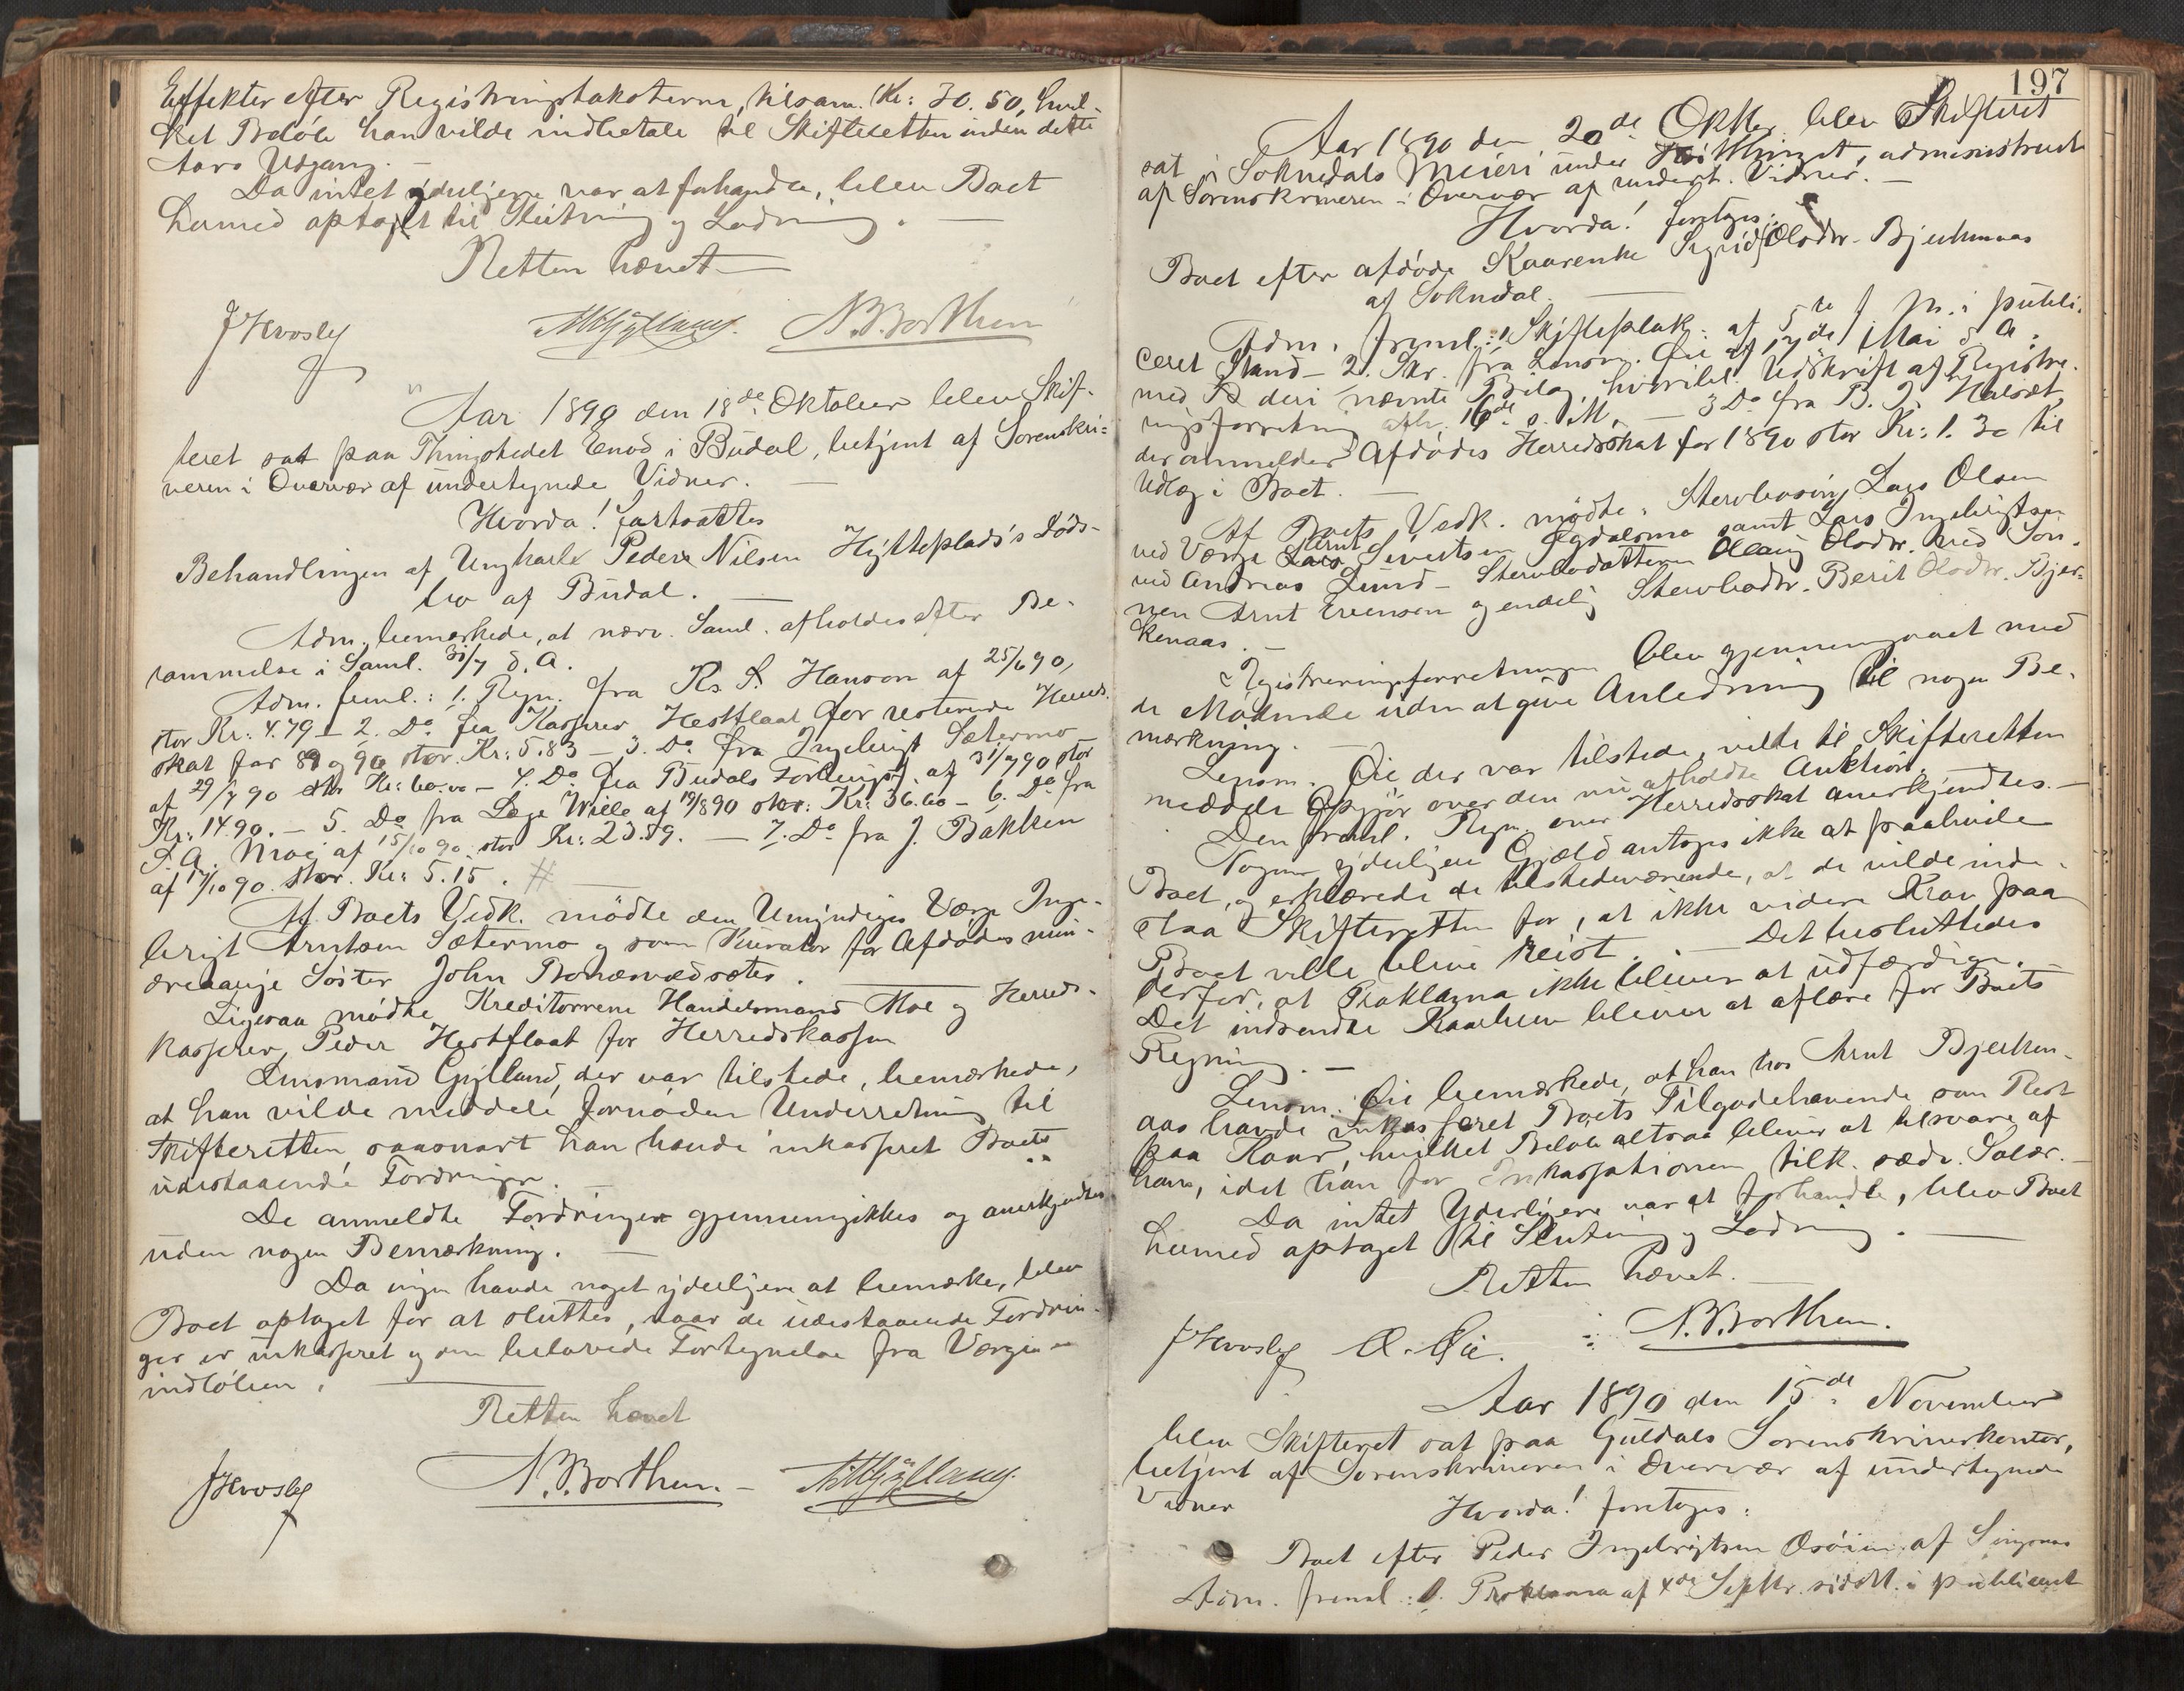 Effekter efter Registringstaksterne, tilsam. Kr: 30.50, hvil-
ket Beløb han vilde indbetale til Skifteretten inden dette
Aars Udgang. —
Da intet yderligere var at forhandle, blev Boet
hermed optaget til Slutning og Lodning. —
Retten hævet —
J Hvoslef A Gylland. N. Borthen
Aar 1890 den 18de Oktober blev Skif-
teret sat paa Thingstedet Enod i Budal, betjent af Sorenskri-
veren i Overvær af undertegnede Vidner. —
Hvorda! fortsattes
Behandlingen af Ungkarl Peder Nilsen Hytteplads's Døds-
bo af Budal. —
Adm. bemærkede, at nærv. Saml. afholdes efter Be-
rammelse i Saml. 31/7 d. A.
Adm. freml.: 1. Regn. fra Rs S. Hanson af 25/6 90,
stor Kr: 4.79 – 2. Do fra Kasserer Hestflaat for resterende Herreds-
skat for 89 og 90 stor Kr: 5.83 – 3. Do fra Ingebrigt Sætermo
af 29/7 90 stor Kr: 60.00 – 4. Do fra Budals Forligsk. af 31/7 90 stor
Kr: 14.90. – 5. Do fra Læge Wille af 19/8 90 stor: Kr: 36.60 – 6. Do fra
P. A. Moe af 15/10 90 stor Kr: 23.59. — 7. Do fra J. Bakken
af 17/10 90. stor. Kr: 5.15. #
Af Boets Vedk. mødte den Umyndiges Værge Inge-
brigt Arntsen Sætermo og som Kurator for Afdødes min-
dreaarige Søster John
Ligesaa mødte Kreditorerne Handelsmand Moe og Herreds-
kasserer Peder Hestflaat for Herredskassen
Lensmand Gylland, der var tilstede, bemærkede,
at han vilde meddele fornøden Underretning til
Skifteretten saasnart han havde inkasseret Boets
udestaaende Fordringer. —
De anmeldte Fordringer gjennemgikkes og anerkjendtes
uden nogen Bemærkning. —
Da ingen havde noget yderligere at bemærke, blev
Boet optaget for at sluttes, naar de udestaaende Fordrin-
ger er inkasseret og den belovede Fortegnelse fra Værgen er
indløben. —
Retten hævet
J Hvoslef N. Borthen. – A Gylland.
197
Aar 1890 den 20de Oktbr. blev Skifteret
sat i Soknedals Meieri under Høstthinget, administreret
af Sorenskriveren i Overvær af undert. Vidner. —
Hvorda! foretoges:
Boet efter afdøde Kaarenke Sigrid Olsdtr. Bjerkenaas
af Soknedal. —
Adm. freml.: 1. Skifteplak. af 5te f. M. i publi-
ceret Stand – 2. Skr. fra Lensm. Øie af 17de Mai d. A.
med de deri nævnte Bilag, hvoriblt. Udskrift af Registre-
ringsforretning afh. 16de s. M. – 3 Do fra B. J. Halsæt,
der anmelder Afdødes Herredsskat for 1890 stor Kr: 1.30 til
Udlæg i Boet. —
Af Boets Vedk. mødte: Stervbosøn Lars Olsen
ved Værge Arnt Sivertsen samt Lars Ingebrigtsen
ved Andreas Lund – Stervbodatteren Ollaug Olsdtr. ved Søn-
nen Arnt Evensen og endelig Stervbodtr. Berit Olsdtr. Bjer-
kenaas. —
Registreringsforretningen blev gjennemgaaet med
de Mødende uden at give Anledning til nogen Be-
mærkning. —
Lensm. Øie der var tilstede, vilde til Skifteretten
meddele Opgjør over den nu afholdte Auktion.
Den freml. Regn. over Herredsskat anerkjendtes. —
Nogen yderligere Gjæld antoges ikke at paahvile
Boet, og erklærede de tilstedeværende, at de vilde inde-
staa Skifteretten for, at ikke videre Krav paa
Boet vilde blive reist. — Det besluttedes
derfor, at Proklama ikke bliver at udfærdige. —
Det indsendte bliver at aflære for Boets
Regning. —
Lensm. Øie bemærkede, at han hos Arnt Bjerken-
aas havde inkasseret Boets Tilgodehavende som Rest
paa Kaar, hvilket Beløb altsaa bliver at tilsvare af
ham, idet han for Inkassationen tilk. sædv. Salær. —
Da intet Yderligere var at forhandle, blev Boet
hermed optaget til Slutning og Lodning. —
Retten hævet. —
J Hvoslef O. Øie. N. Borthen.
Aar 1890 den 15de November
blev Skifteret sat paa Guldals Sorenskriverkontor,
betjent af Sorenskriveren i Overvær af undertegnede
Vidner
Hvorda! foretoges:
Boet efter Peder Ingebrigtsen Osøien af Singsaas
Adm. freml.: 1. Proklama af 4de Septbr. sidstl. i publiceret